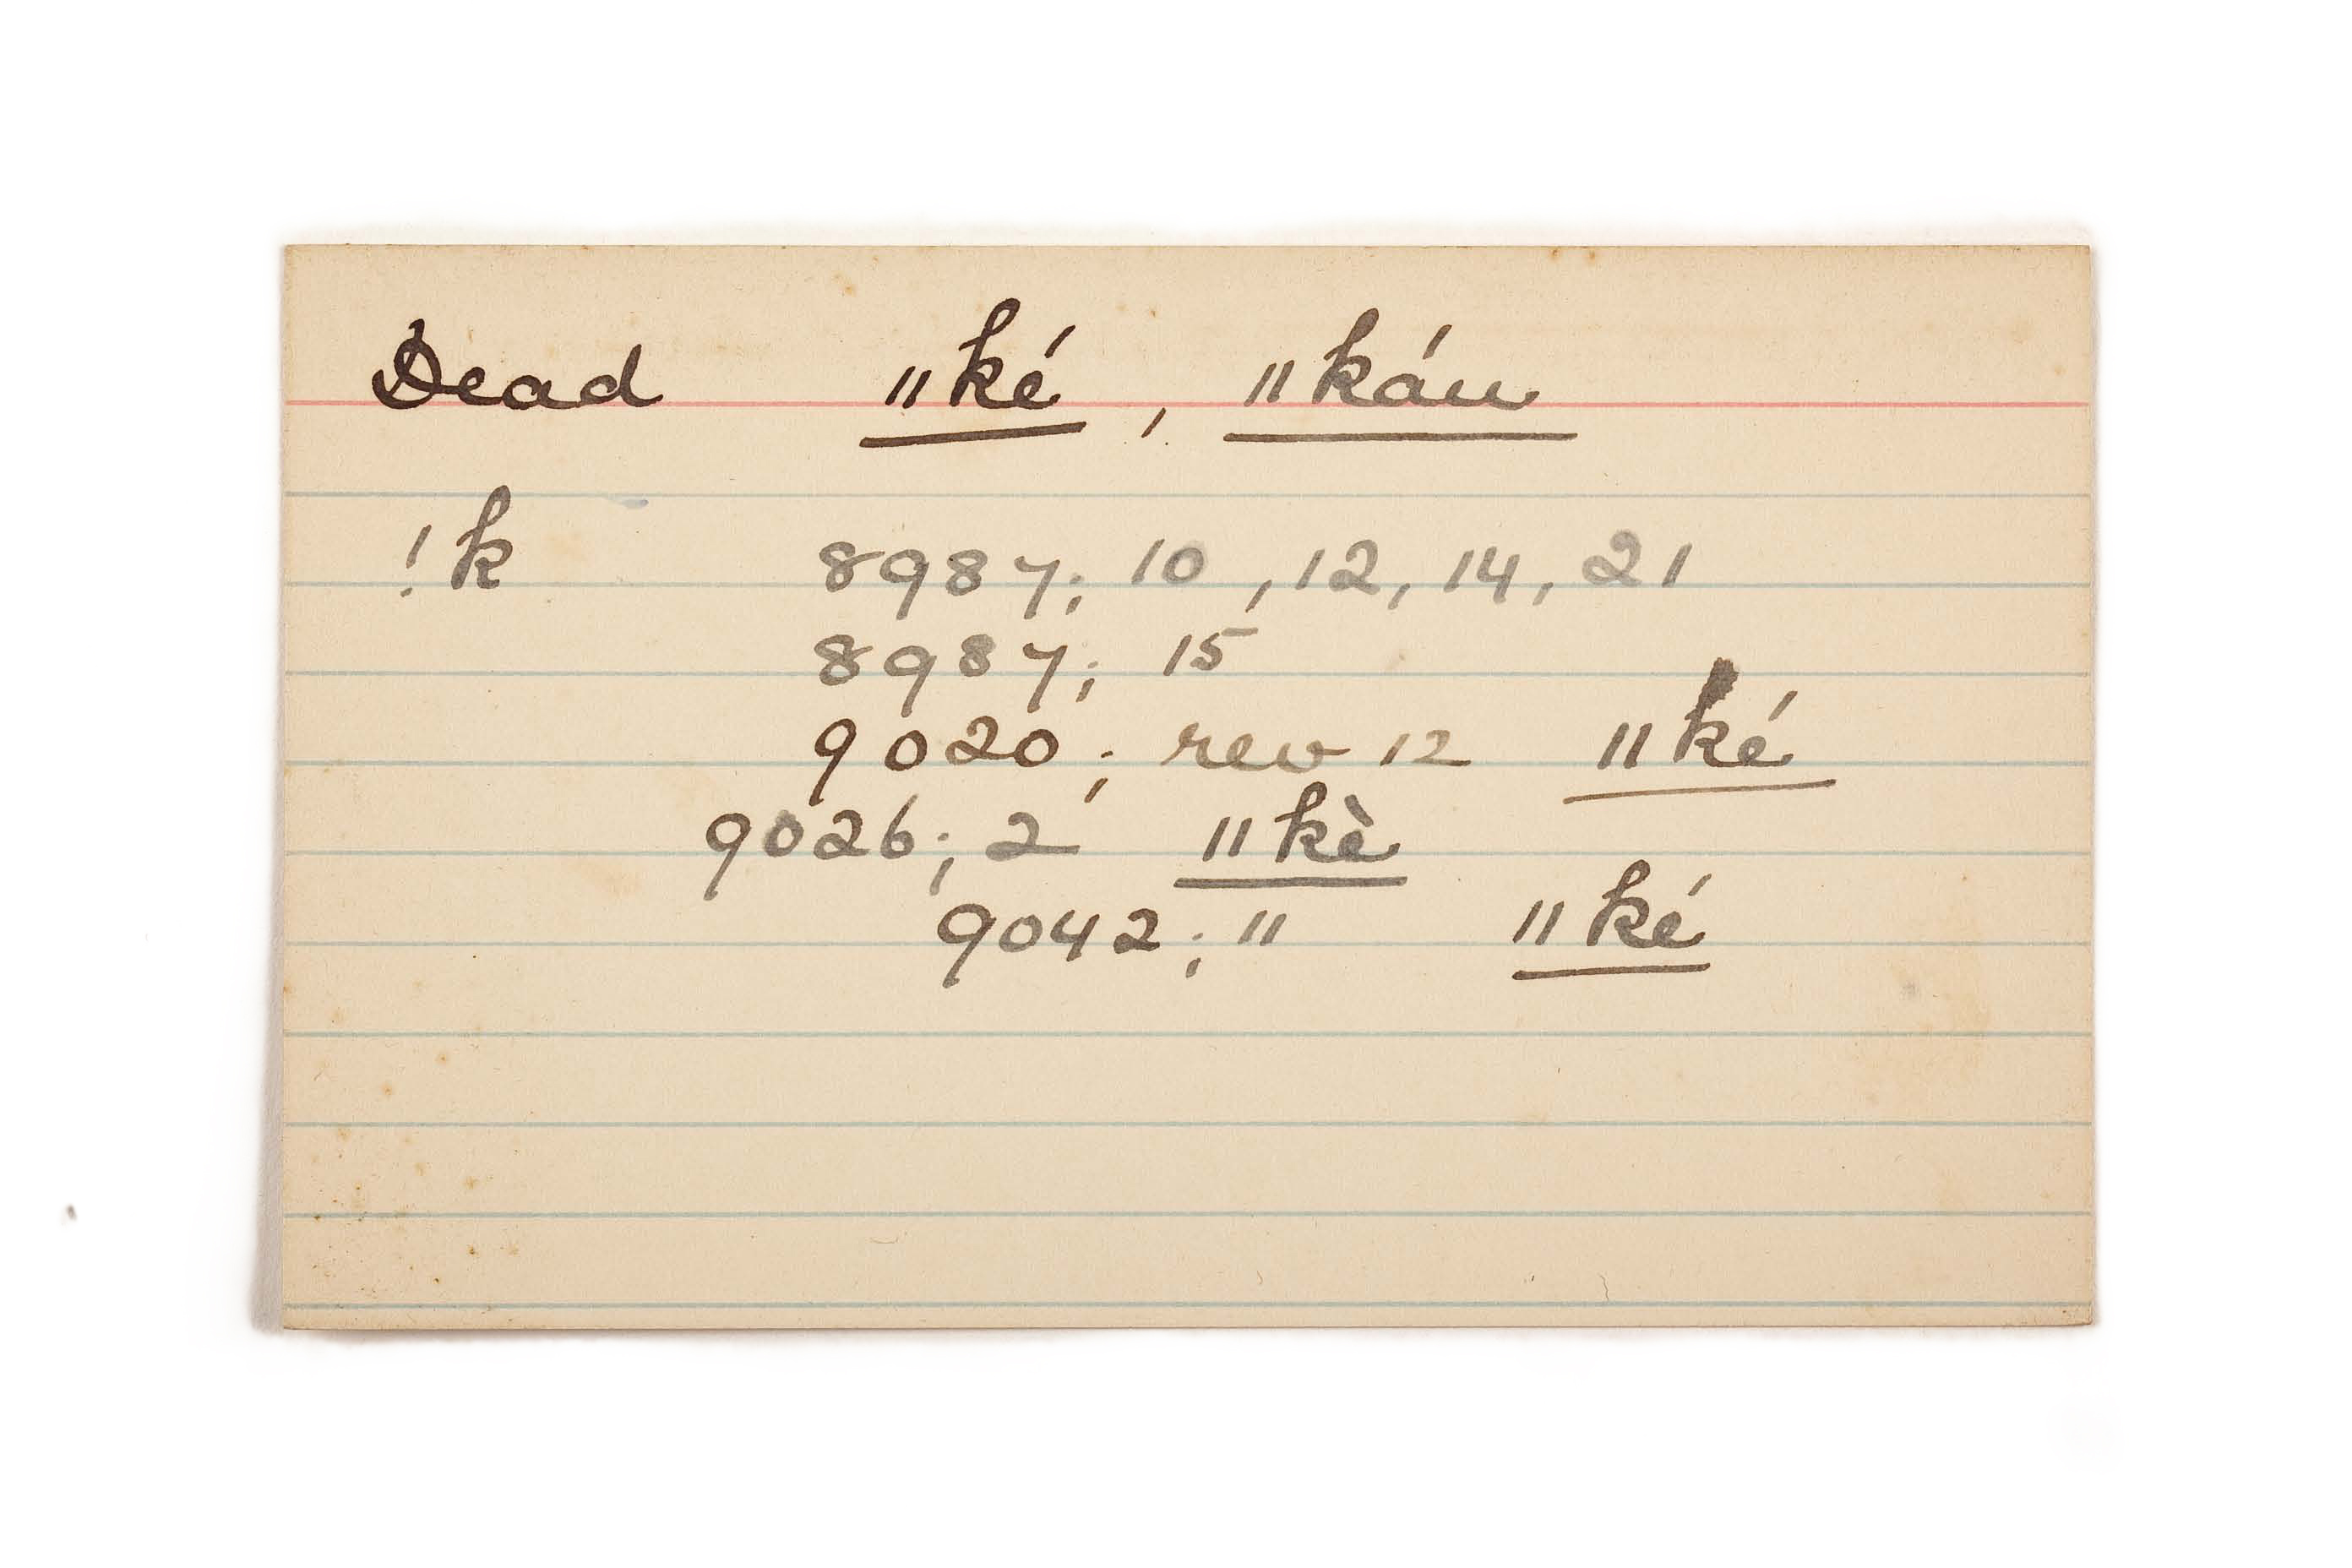 Dead ǁké, ǁkáu
!k 8987; 10, 12, 14, 21
8987; 15
9020; rev 12 ǁké
9026; 2 ǁkè
9042; " ǁké